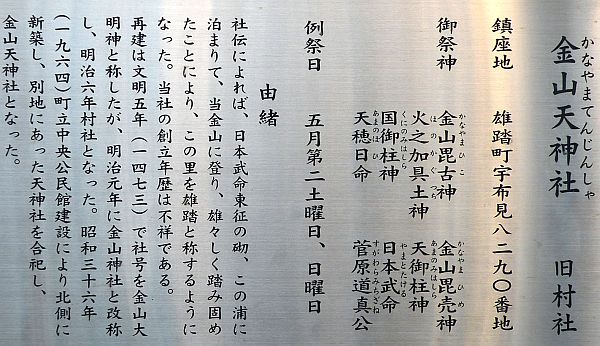 かなやまてんじんしゃ
金山天神社 旧村社
鎮座地 雄踏町宇布見八二九〇番地
かなやまひこ かなやまひめ
御祭神 金山毘古神 金山毘売神
ほのかぐつち あまのみはしら
火之加具土神 天御柱神
くにのみはしら やまとたける
国御柱神 日本武命
あまのほひ すがわらみちざね
天穂日命 菅原道真公
例祭日 五月第二土曜日、日曜日
由緒
社伝によれば、日本武命東征の砌、この浦に
泊まりて、当金山に登り、雄々しく踏み固め
たことにより、この里を雄踏と称するように
なった。当社の創立年歴は不祥である。
再建は文明五年（一四七三）で社号を金山大
明神と称したが、明治元年に金山神社と改称
し、明治六年村社となった。昭和三十六年
（一九六四）町立中央公民館建設により北側に
新築し、別地にあった天神社を合祀し、
金山天神社となった。